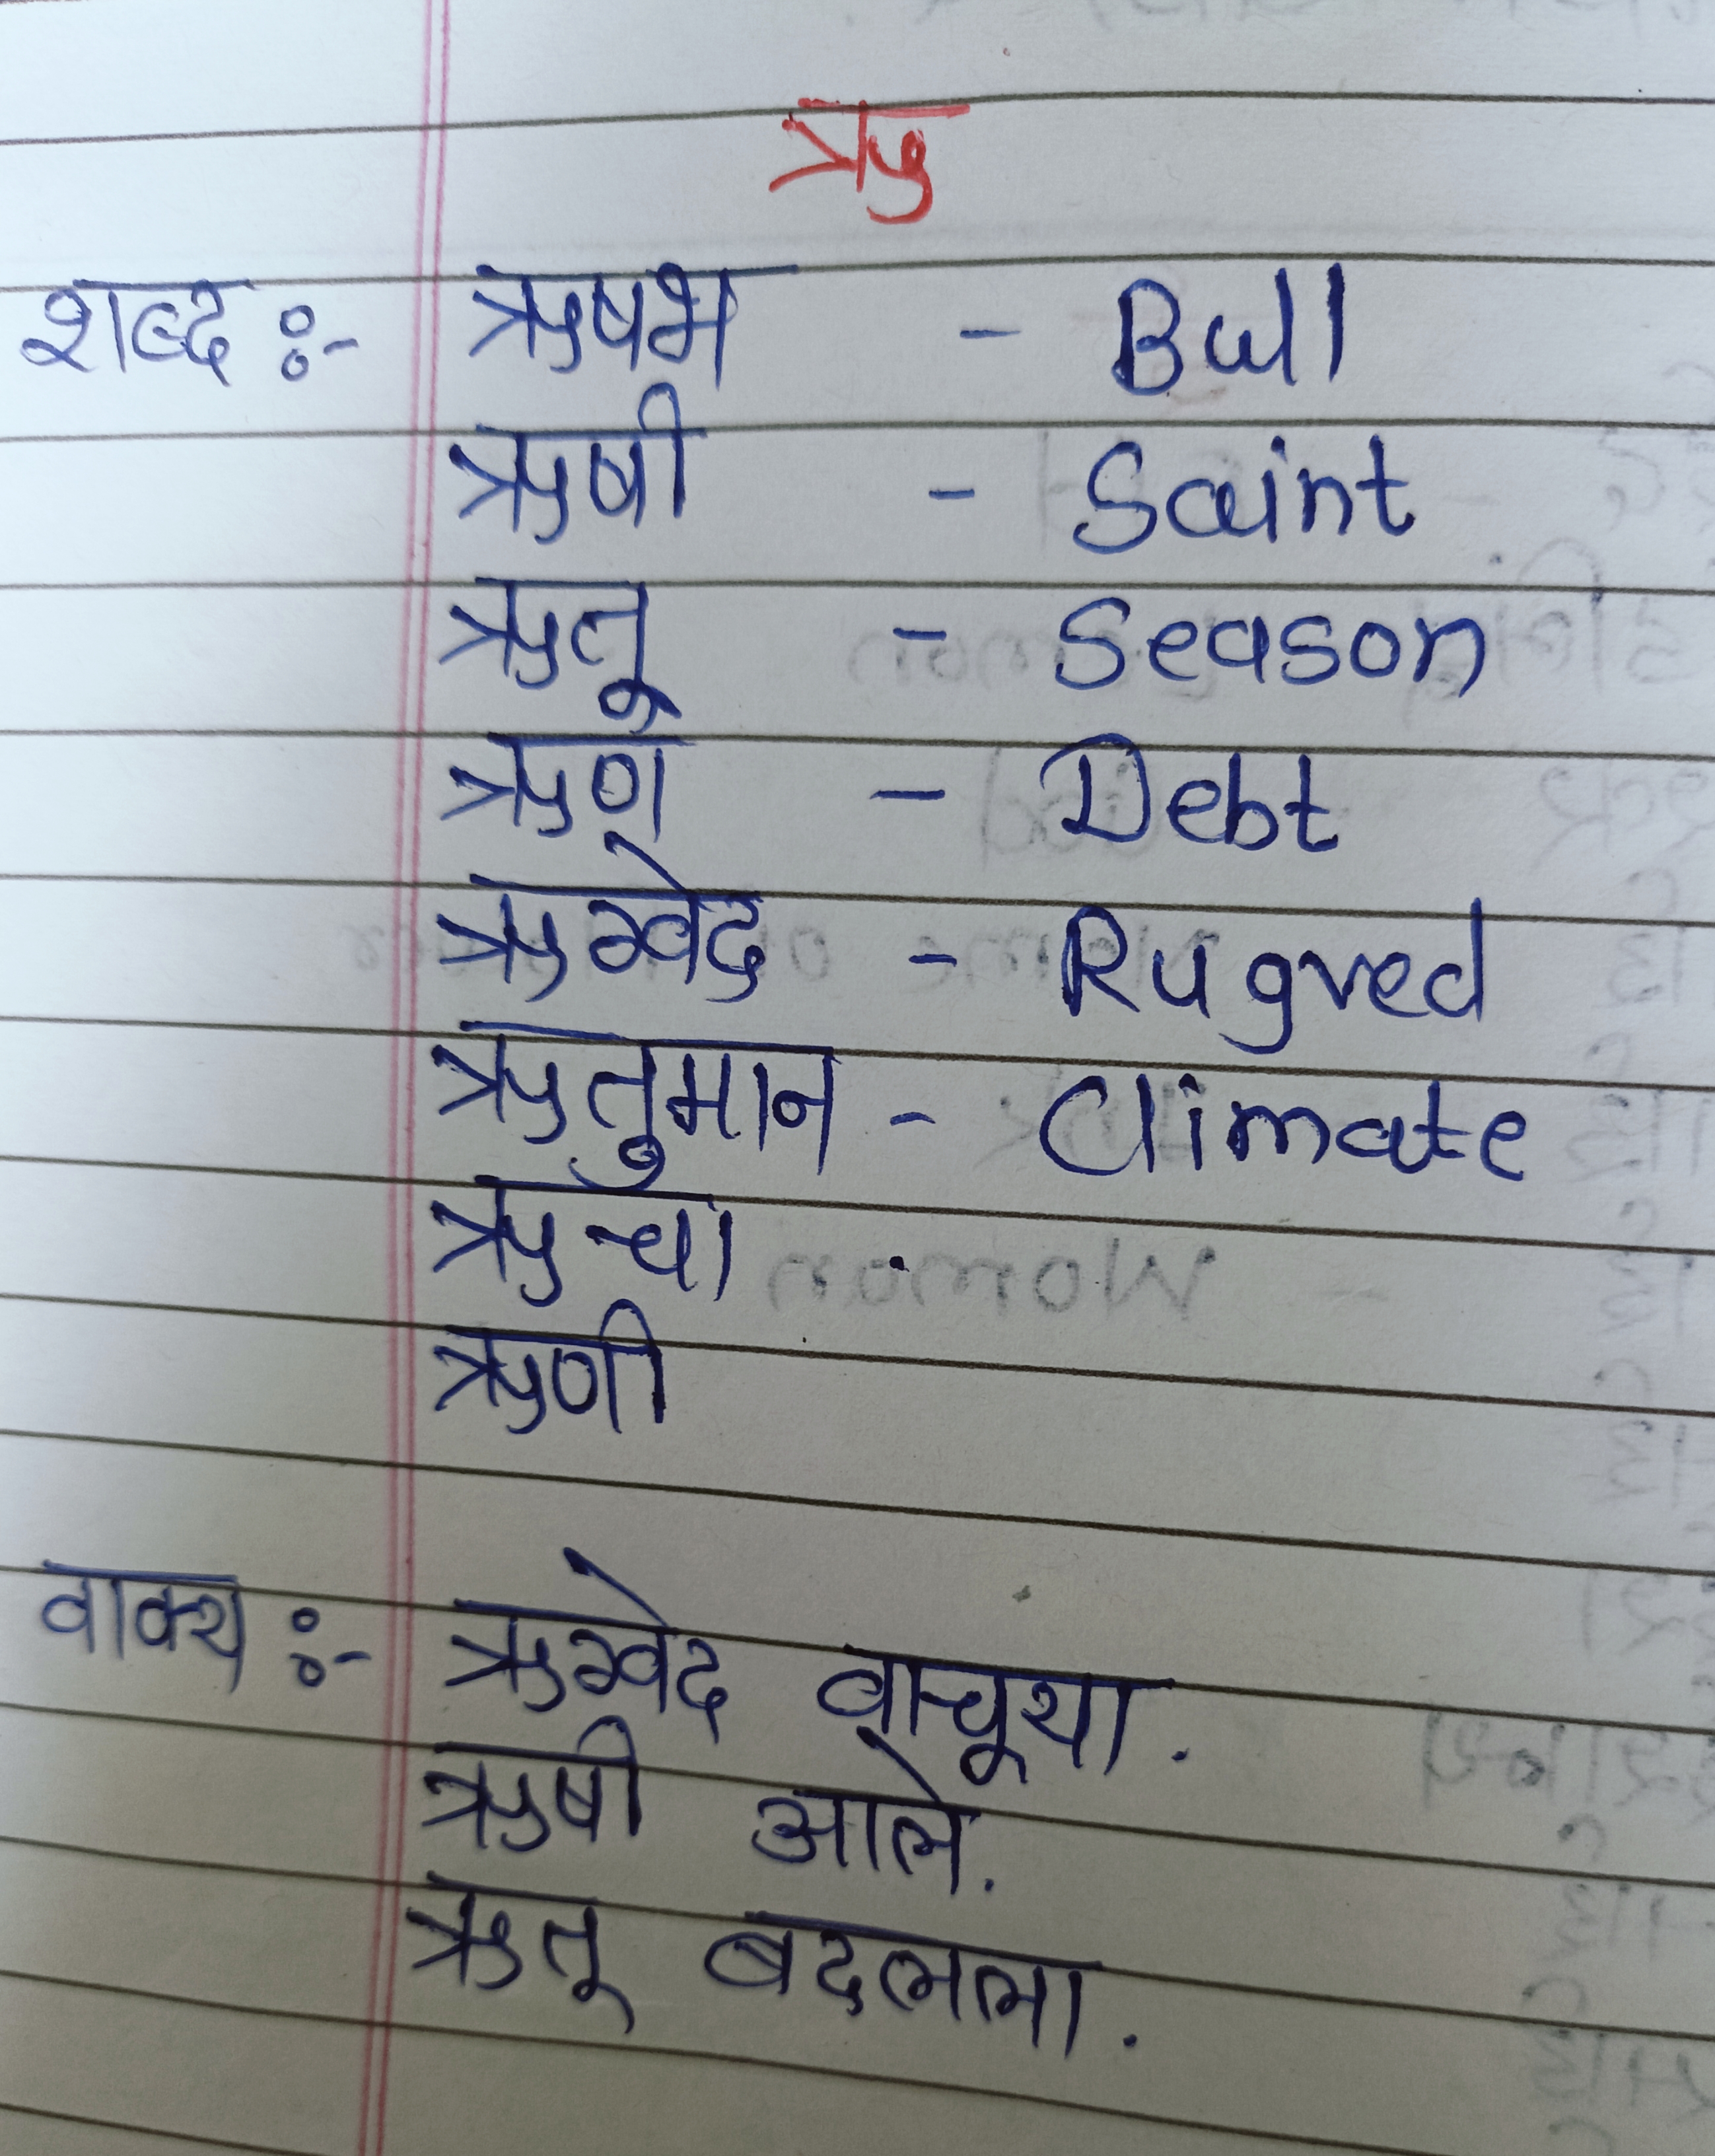 ऋ
शब्द :- ऋषभ - Bull
ऋषी - Saint
ऋतू - Season
ऋण - Debt
ऋग्वेद - Rugved
ऋतुमान - Climate
ऋचा
ऋणी
वाक्य :- ऋग्वेद वाचूया.
ऋषी आले.
ऋतू बदलला.